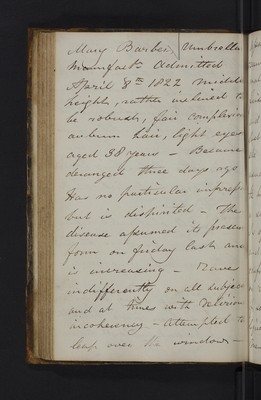 Mary Barber Umbrella
Manufacts Admitted
April 8th 1822 middle
height, rather inclined to
be robust, fair complexion
auburn hair, light eyes
aged 38 years – Became
deranged three days ago
Has no particular impress
but is dispirited – The
disease assumed its present
form on friday last and
is increasing – Raves
indifferently on all subjects
and at times with delirious
incoherency – Attempted to
leap over the window –